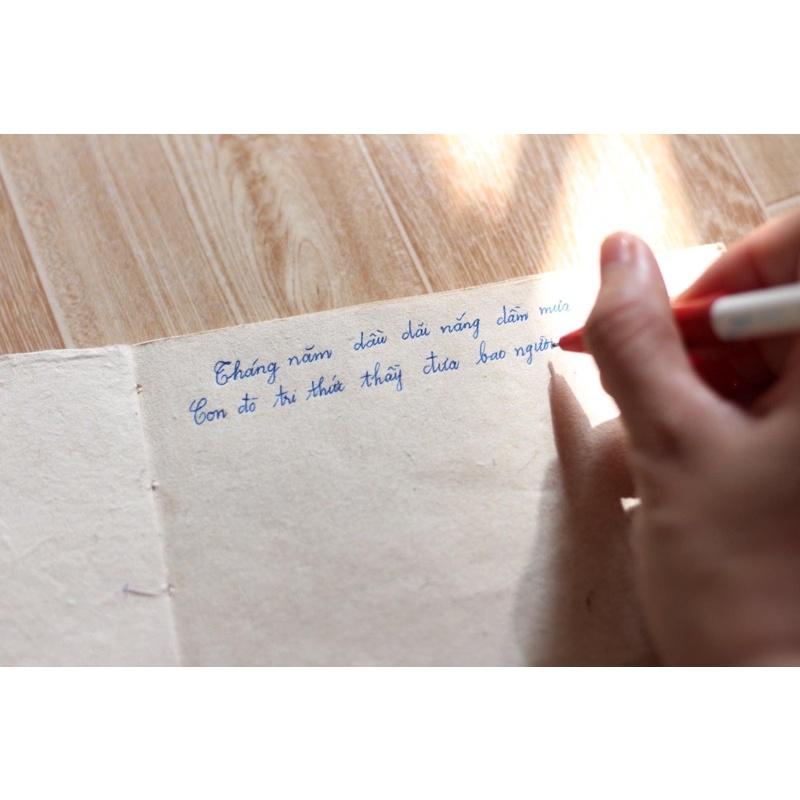 Tháng năm dầu dãi nắng dầm mưa
Con đò tri thức thầy đưa bao người